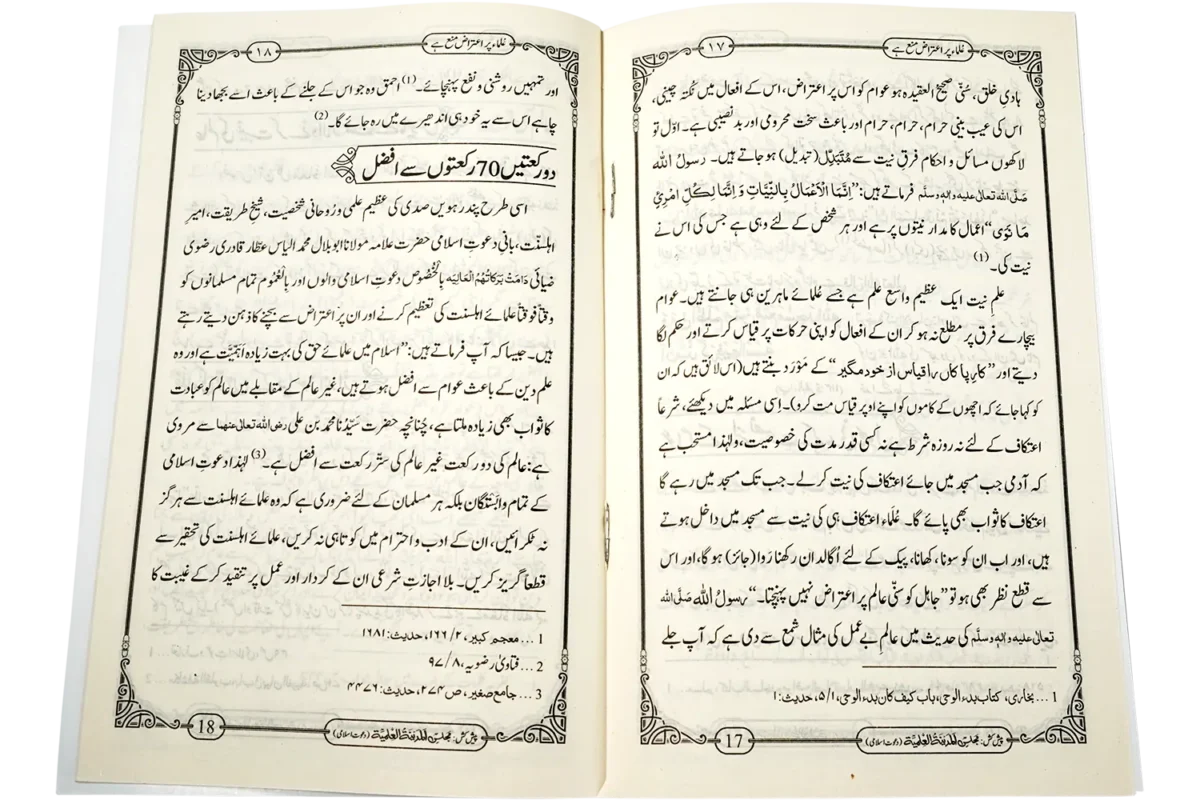 علماء پر اعتراض منع ہے
١٧
ہادیِ خلق، سُنّی صحیح العقیدہ ہو عوام کو اس پر اعتراض، اس کے افعال میں نکتہ چینی،
اس کی عیب بینی حرام، حرام، حرام اور باعث سخت محرومی اور بدنصیبی ہے۔ اوّل تو
لاکھوں مسائل و احکام فرقِ نیت سے مُتَبَدِّل (تبدیل) ہو جاتے ہیں۔ رسولُ اللہ
صَلَّی اللہ تعالٰی علیہ واٰلہٖ وسلَّم فرماتے ہیں: ”اِنَّمَا الْاَعْمَالُ بِالنِّیَّاتِ وَ اِنَّمَا لِکُلِّ امْرِئٍ
مَّا نَوٰی“ اعمال کا مدار نیتوں پر ہے اور ہر شخص کے لئے وہی ہے جس کی اس نے
نیت کی۔(1)
علمِ نیت ایک عظیم واسع علم ہے جسے عُلمائے ماہرین ہی جانتے ہیں۔ عوام
بیچارے فرق پر مطلع نہ ہو کر ان کے افعال کو اپنی حرکات پر قیاس کرتے اور حکم لگا
دیتے اور ”کارِ پاکاں را قیاس از خود مگیر“ کے مَوْرَد بنتے ہیں (اس لائق ہیں کہ ان
کو کہا جائے کہ اچھوں کے کاموں کو اپنے اوپر قیاس مت کرو)۔ اِسی مسئلہ میں دیکھئے، شرعاً
اعتکاف کے لئے نہ روزہ شرط ہے نہ کسی قدر مدت کی خصوصیت، ولہٰذا مستحب ہے
کہ آدمی جب مسجد میں جائے اعتکاف کی نیت کر لے۔ جب تک مسجد میں رہے گا
اعتکاف کا ثواب بھی پائے گا۔ عُلَماء اعتکاف ہی کی نیت سے مسجد میں داخل ہوتے
ہیں، اور اب ان کو سونا، کھانا، پیک کے لئے اُگالدان رکھنا رَوا (جائز) ہو گا، اور اس
سے قطع نظر بھی ہو تو ”جاہل کو سنّی عالم پر اعتراض نہیں پہنچتا۔“ رسولُ اللہ صَلَّی اللہ
تعالٰی علیہ واٰلہٖ وسلَّم کی حدیث میں عالمِ بے عمل کی مثال شمع سے دی ہے کہ آپ جلے
1 ... بخاری، کتاب بدء الوحی، باب کیف کان بدء الوحی، ۵/۱، حدیث: ۱
پیش کش: مجلس المدینۃ العلمیۃ (دعوتِ اسلامی)
17
علماء پر اعتراض منع ہے
١٨
اور تمہیں روشنی و نفع پہنچائے۔(1) احمق وہ جو اس کے جلنے کے باعث اسے بجھا دینا
چاہے اس سے یہ خود ہی اندھیرے میں رہ جائے گا۔(2)
دو رکعتیں 70 رکعتوں سے افضل
اسی طرح پندرہویں صدی کی عظیم علمی و رُوحانی شخصیت، شیخِ طریقت، امیرِ
اہلسنّت، بانیِ دعوتِ اسلامی حضرت علامہ مولانا ابوبلال محمد الیاس عطار قادری رضوی
ضیائی دَامَتْ بَرَکَاتُہُمُ الْعَالِیَہ بِالْخُصُوص دعوتِ اسلامی والوں اور بِالْعُمُوم تمام مسلمانوں کو
وقتاً فوقتاً علمائے اہلسنت کی تعظیم کرنے اور ان پر اعتراض سے بچنے کا ذہن دیتے رہتے
ہیں۔ جیسا کہ آپ فرماتے ہیں: ”اسلام میں علمائے حق کی بہت زیادہ اَہَمِّیَّت ہے اور وہ
علم دین کے باعث عوام سے افضل ہوتے ہیں، غیر عالم کے مقابلے میں عالم کو عبادت
کا ثواب بھی زیادہ ملتا ہے، چُنانچِہ حضرت سَیِّدُنا محمد بن علی رضی اللہ تعالٰی عنہما سے مروی
ہے: عالم کی دو رکعت غیر عالم کی ستّر رکعت سے افضل ہے۔(3) لہٰذا دعوتِ اسلامی
کے تمام وابَستگان بلکہ ہر مسلمان کے لئے ضروری ہے کہ وہ علمائے اہلسنت سے ہرگز
نہ ٹکرائیں، ان کے ادب و احترام میں کوتاہی نہ کریں، علمائے اہلسنت کی تحقیر سے
قطعاً گریز کریں۔ بلا اجازتِ شرعی ان کے کردار اور عمل پر تنقید کر کے غیبت کا
1 ... معجم کبیر، ۱۶۶/۲، حدیث: ۱۶۸۱
2 ... فتاویٰ رضویہ، ۹۷/۸
3 ... جامع صغیر، ص ۲۷۴، حدیث: ۴۴۷۶
پیش کش: مجلس المدینۃ العلمیۃ (دعوتِ اسلامی)
18